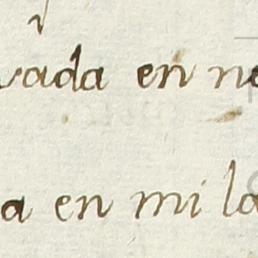 vada en ne
a en mi la